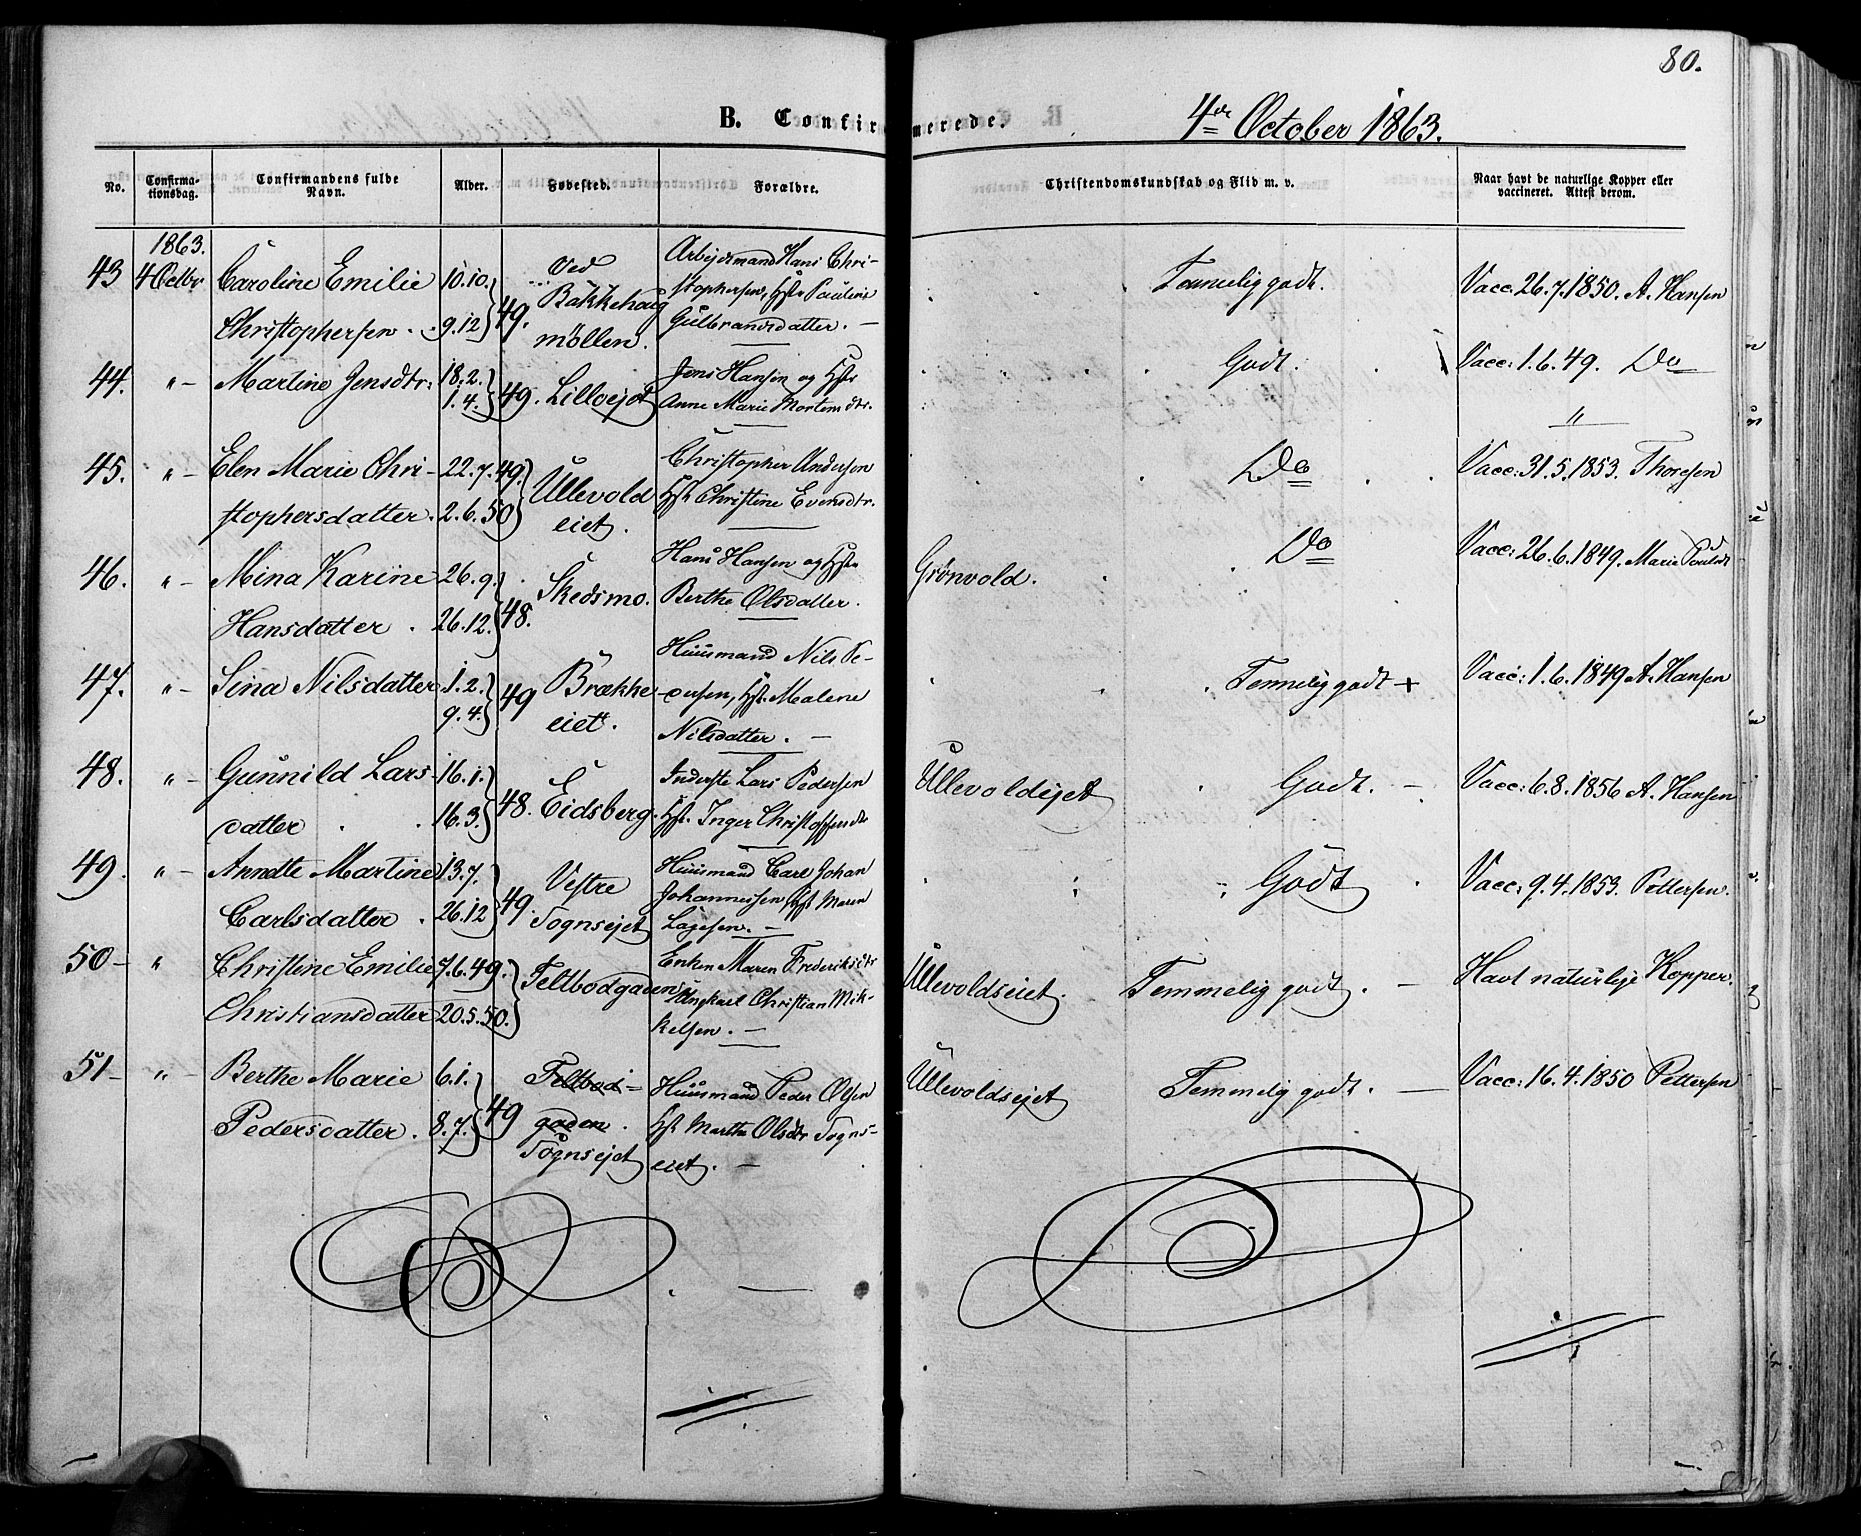 80.
B. Confirmerede. 4de October 1863.
No. Confirmationsdag. Confirmandens fulde Navn. Alder. Fødested. Forældre. Christendomskundskab og Flid m. v. Naar havt de naturlige Kopper eller vaccineret. Attest derom.
1863.
43 4 Octbr Caroline Emilie 10.10. Ved Arbejdsmand Hans Chri-
Christophersen. 9.12 49. Bakkehaug stophersen, Hst. Pauline
møllen. Gulbrandsdatter. —
Temmelig godt. Vacc. 26.7.1850. A. Hansen
44. " — Martine Jensdtr. 18.2. 49. Lilloejet Jens Hansen og Hstr
1.4. Anne Marie Mortensdtr.
Godt. Vacc: 1.6.49. Do
"
45. " — Elen Marie Chri- 22.7.49. Ullevold Christopher Andersen
stophersdatter. 2.6.50 eiet. Hst. Christine Evensdtr.
Do Vacc: 31.5.1853. Thoresen
46. " — Mina Karine 26.9. Skedsmo. Hans Hansen og Hstr
Hansdatter. 26.12. 48. Berthe Olsdatter.
Grønvold. Do Vacc: 26.6.1849. Marie
47. " — Sina Nilsdatter 1.2. 49 Brække Huusmand Nils Pe-
9.4. eiet. dersen, Hst. Malene
Nilsdatter. —
Temmelig godt + Vacc: 1.6.1849 A. Hansen
48. " — Gunnild Lars- 16.1. 48. Eidsberg. Inderste Lars Pedersen
datter 16.3. Hst. Inger Christoffersdr
Ullevoldejet Godt. — Vacc: 6.8.1856 A. Hansen
49. " — Annette Martine 13.7. Vestre Huusmand Carl Johan
Carlsdatter. 26.12 49. Tognsejet Johannessen, Hst Maren
Lagesen. —
Godt Vacc: 9.4.1853. Pettersen.
50 — " Christine Emilie 7.6.49. Feltbodgaden Enken Maren Frederiksdtr
Christiansdatter 20.5.50. Ungkarl Christian Mik-
kelsen. —
Ullevoldseiet. Temmelig godt. — Havt naturlige Kopper.
51 — " — Berthe Marie 6.1. Feltbod- Huusmand Peder Olsen
Pedersdatter. 8.7. 49 gaden. Hst Marthe Olsdtr Togns-
Tognsejet eiet. —
Ullevoldsejet Temmelig godt. — Vacc: 16.4.1850 Pettersen